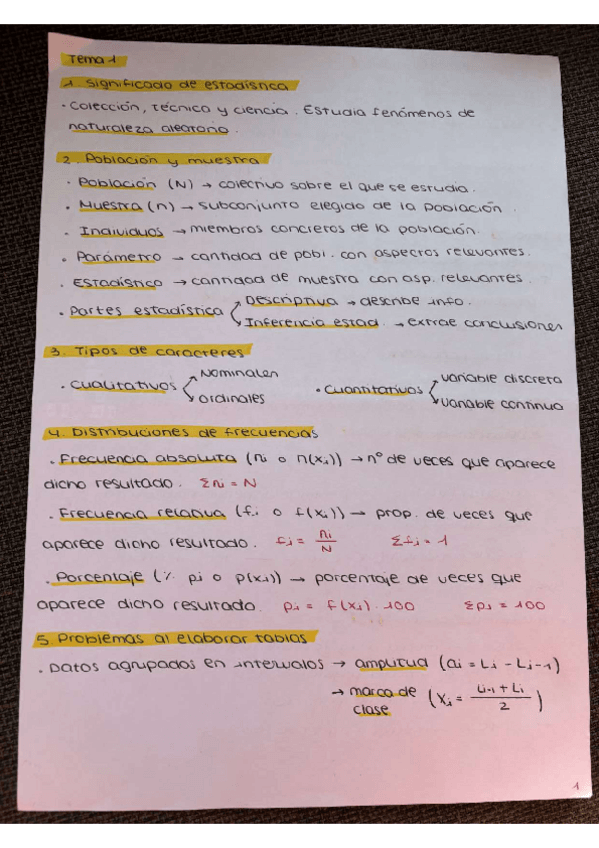 Tema 1
1. Significado de estadística
· Colección, técnica y ciencia. Estudia fenómenos de
naturaleza aleatoria.
2. Población y muestra
· Población (N) → colectivo sobre el que se estudia.
· Muestra (n) → subconjunto elegido de la población.
· Individuos → miembros concretos de la población.
· Parámetro → cantidad de pobl. con aspectos relevantes.
· Estadístico → cantidad de muestra con asp. relevantes.
· Partes estadística
Descriptiva → describe info.
Inferencia estad. → extrae conclusiones
3. Tipos de caracteres
· Cualitativos
Nominales
Ordinales
· Cuantitativos
variable discreta
variable continua
4. Distribuciones de frecuencias
· Frecuencia absoluta (ni o n(xi)) → nº de veces que aparece
dicho resultado. Σni = N
· Frecuencia relativa (fi o f(xi)) → prop. de veces que
aparece dicho resultado. fi = ni/N Σfi = 1
· Porcentaje (% pi o p(xi)) → porcentaje de veces que
aparece dicho resultado. pi = f(xi) · 100 Σpi = 100
5. Problemas al elaborar tablas
· Datos agrupados en intervalos → amplitud (ai = Li - Li-1)
→ marca de clase (xi = (Li-1 + Li)/2)
1